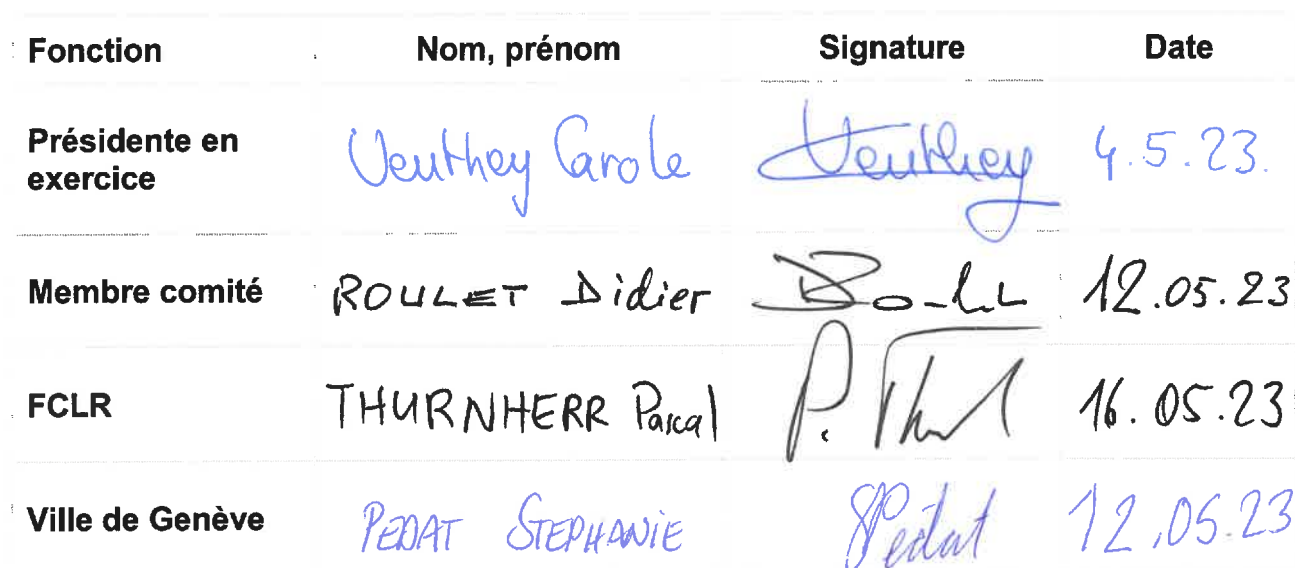 Fonction Nom, prénom Signature Date
Présidente en
exercice Veuthey Carole Veuthey 4.5.23.
Membre comité ROULET Didier 12.05.23
FCLR THURNHERR Pascal P. Thur 16.05.23
Ville de Genève PEDAT STEPHANIE SPedat 12.05.23